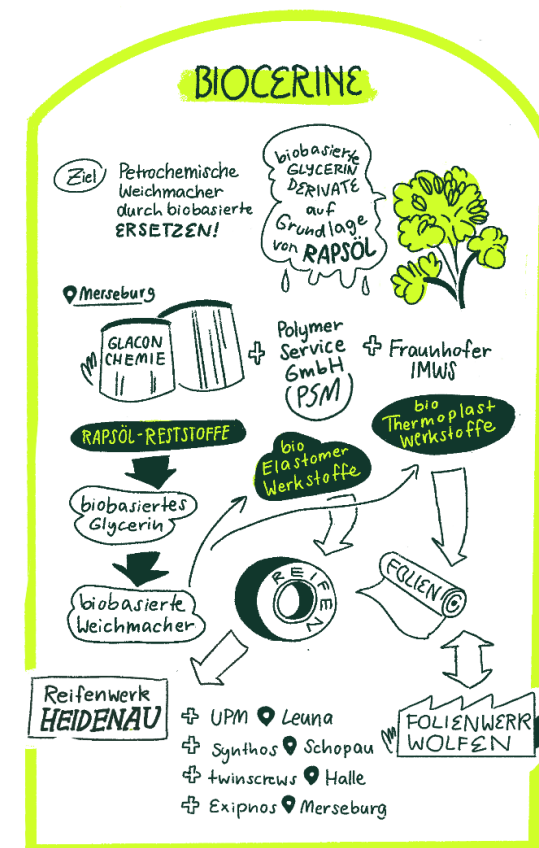 BIOCERINE
Ziel
Petrochemische
Weichmacher
durch biobasierte
ERSETZEN!
biobasierte
GLYCERIN
DERIVATE
auf
Grundlage
von RAPSÖL
Merseburg
GLACON
CHEMIE
Polymer
Service
GmbH
(PSM)
Fraunhofer
IMWS
RAPSÖL-RESTSTOFFE
bio
Elastomer
Werkstoffe
bio
Thermoplast
Werkstoffe
biobasiertes
Glycerin
biobasierte
Weichmacher
REIFEN
FOLIEN
Reifenwerk
HEIDENAU
+ UPM Leuna
+ Synthos Schopau
+ twinscrews Halle
+ Exipnos Merseburg
FOLIENWERK
WOLFEN